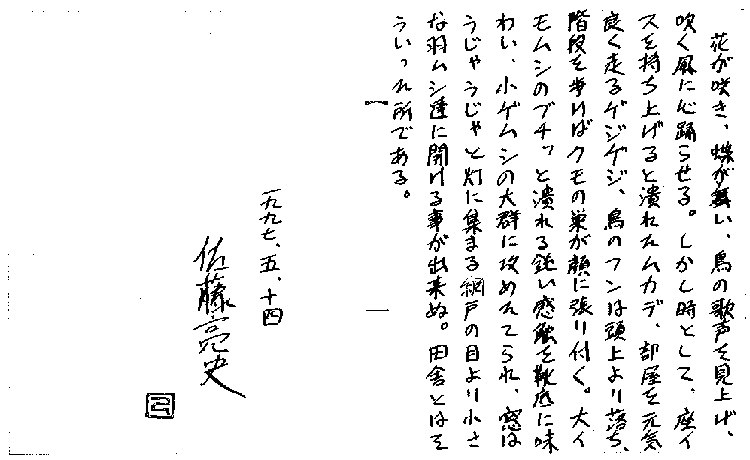 花が咲き、蝶が舞い、鳥の歌声を見上げ、
吹く風に心踊らせる。しかし時として、座イ
スを持ち上げると潰れたムカデ、部屋を元気
良く走るゲジゲジ、鳥のフンは頭上より落ち、
階段を歩けばクモの巣が顔に張り付く。大イ
モムシのブチッと潰れる鈍い感触を靴底に味
わい、小ゲムシの大群に攻めたてられ、窓は
うじゃうじゃと灯に集まる網戸の目より小さ
な羽ムシ達に開ける事が出来ぬ。田舎とはそ
ういった所である。
一九九七、五、十四
佐藤亮史